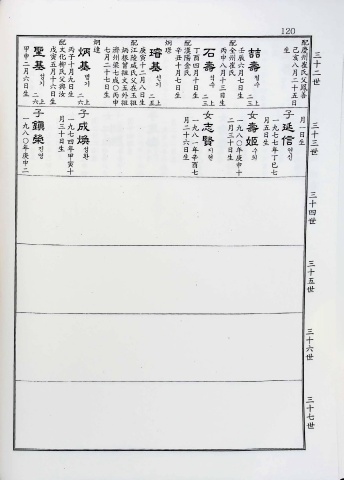 120
三十二世
配慶州崔氏父鳳善
己亥八月二十五日
生
喆壽 철수 二上三
壬辰六月七日生
配全州崔氏
丙申八月十三日生
石壽 석수 二上三
丁酉四月十日生
配漢陽趙氏
辛丑十月七日生
炳瑾
璿基 선기 二上五
庚寅十二月八日生
配江陵咸氏父在玉祖
炳七月二十七日生
炳達
炳基 병기 二上六
丙子十月九日生
配文化柳氏父興汝
戊寅五月十六日生
聖基 성기 二上六
甲申二月六日生
三十三世
月一日生
子 延信 연신
一九七七年丁巳七
月五日生
女 壽姬 수희
一九八〇年庚申十
二月三十日生
女 志賢 지현
一九八一年辛酉七
月二十六日生
子 成煥 성환
一九七四年甲寅十
月三十日生
子 鎭榮 진영
一九八〇年庚申二
三十四世
三十五世
三十六世
三十七世